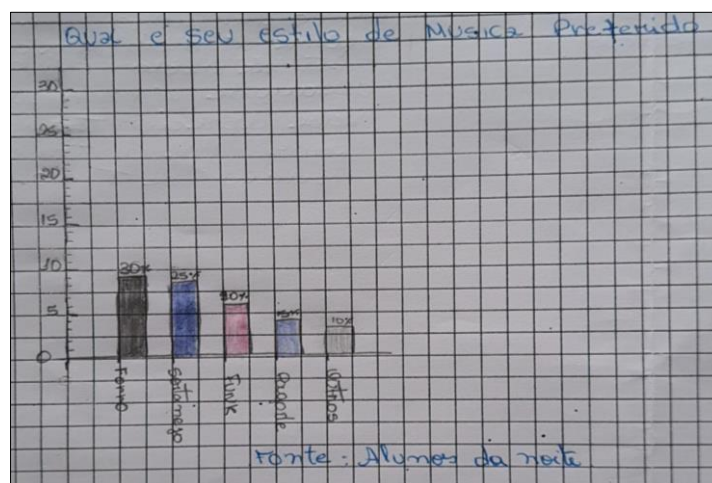 Qual e seu estilo de Musica Preferido
30
25
20
15
10
5
0
30%
25%
20%
15%
10%
Forró
Sertanejo
Funk
Pagode
Outros
Fonte: Alunos da noite